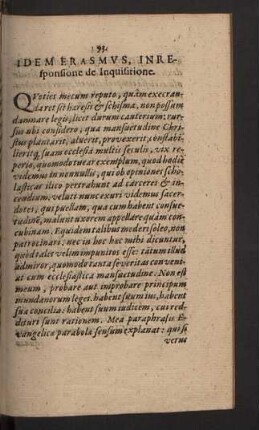 93.
IDEM ERASMVS, IN RE-
sponsione de Inquisitione.
QVoties mecum reputo, quàm execran-
da res sit hæresis & schisma, non possum
damnare leges, licet durum cauterium: rur-
sus ubi considero, qua mansuetudine Chri-
stus plantarit, aluerit, provexerit, constabi-
lieritq; suam ecclesiã multis seculis, vix re-
perio, quomodo tuear exemplum, quod hodiè
videmus in nonnullis, qui ob opiniones scho-
lasticas illico pertrahunt ad carceres & in-
cendium, veluti nunc exuri videmus sacer-
dotes, qui puellam, qua cum habent consue-
tudinẽ, malunt uxorem appellare quàm con-
cubinam. Equidem talibus moderi soleo, non
patrocinari; nec in hoc hæc mihi dicuntur,
quòd tales velim impunitos esse: tãtum illud
admiror, quomodo tanta severitas conveni-
at cum ecclesiastica mansuetudine. Non est
meum, probare aut improbare principum
mundanorum leges: habent suum ius, habent
sua concilia: habent suum iudicem, cui red-
dituri sunt rationem. Mea paraphrasis E-
vangelica parabolæ sensum explanat: qui si
verus